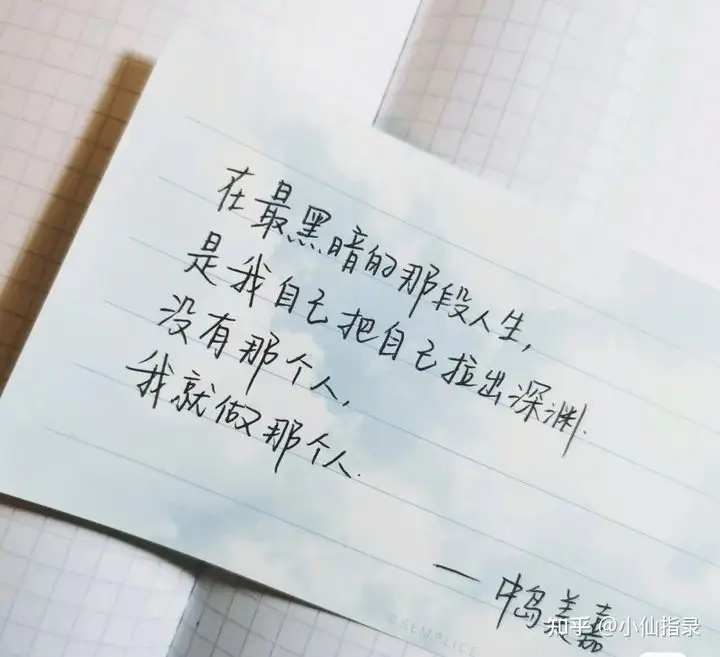 在最黑暗的那段人生,
是我自己把自己拉出深渊.
没有那个人,
我就做那个人.
一中岛美嘉
©SEMPLICE
知乎 @小仙指录